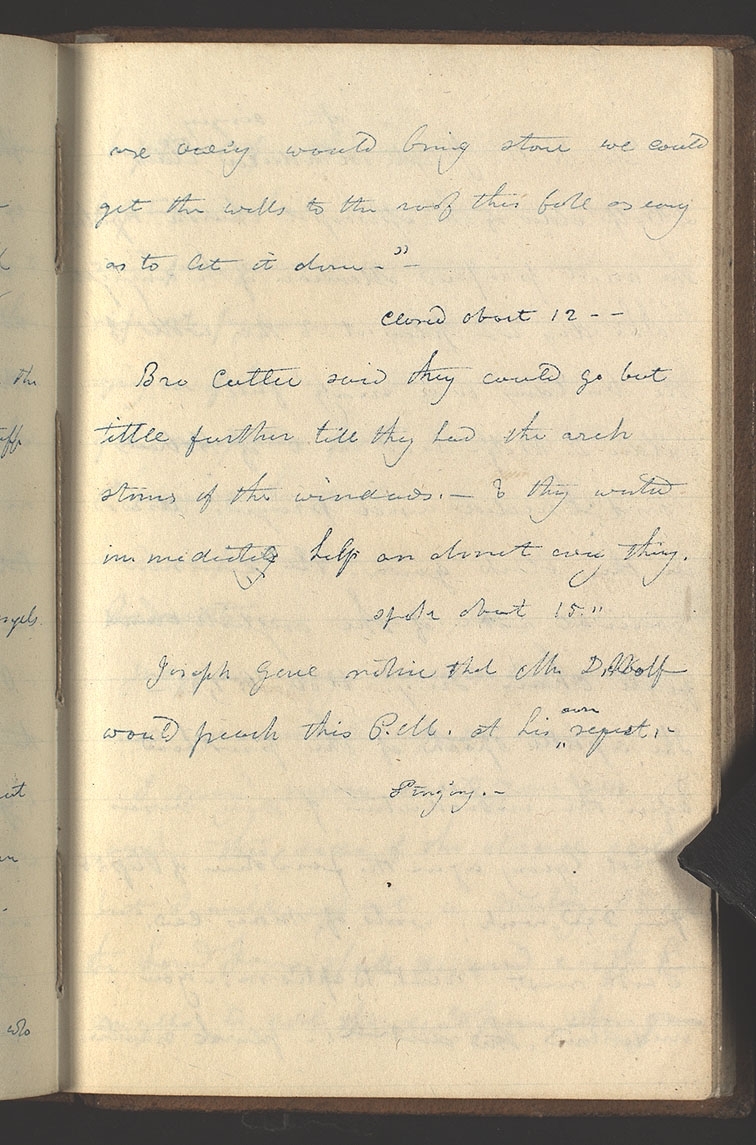 would bring stone we could
get the walls to the roof this fall as easy
as to let it alone -" -
closed about 12 - -
Bro Cutler said they could go but
little further till they had the arch
stones of the windows. - & they wanted
immediately help on almost every thing.
spoke about 15"
Joseph gave notice that Mr DWolf
would preach this P.M. at his own request. -
Singing. -
the
angels
who